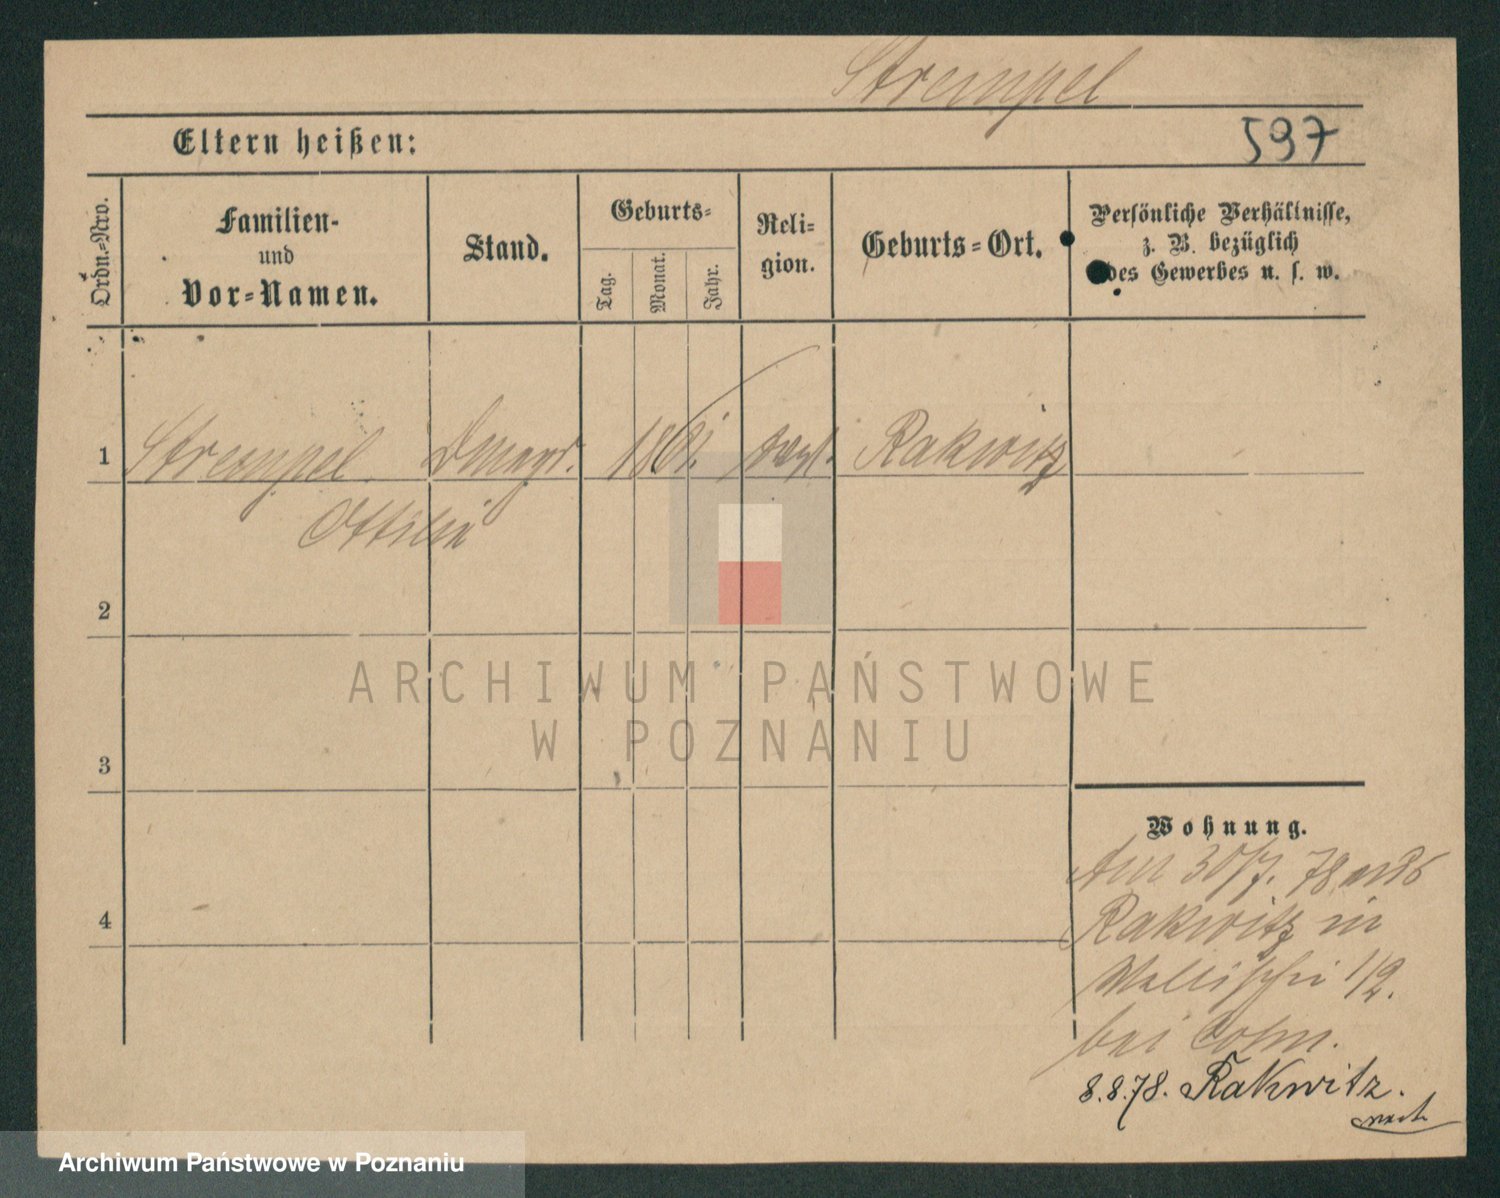 Strempel
Eltern heißen:
597
Ordn.-Nro.
Familien-
und
Vor-Namen.
Stand.
Geburts-
Tag.
Monat.
Jahr.
Reli-
gion.
Geburts-Ort.
Persönliche Verhältnisse,
z. B. bezüglich
des Gewerbes u. s. w.
1
Strempel
1861.
Rakwitz
Ottilie
2
ARCHIWUM PAŃSTWOWE
W POZNANIU
3
Wohnung.
Am 30/7. 78 aus
4
Rakwitz in
Wallischei 1/2.
bei Cohn.
8.8.78. Rakwitz.
nach
Archiwum Państwowe w Poznaniu